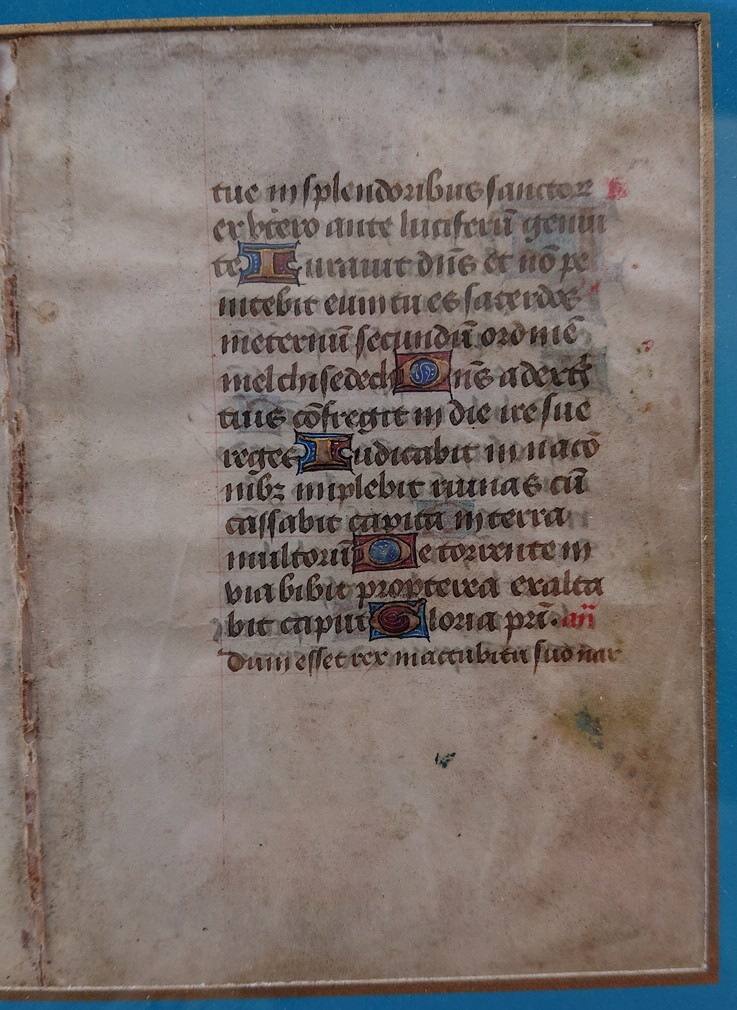 tue in splendoribus sanctoꝝ
ex vtero ante luciferū genui
te Iurauit dñs et nō pe
nitebit eum tu es sacerdos
in eternū secundū ordinē
melchisedech Dñs a dextꝭ
tuis cōfregit in die ire sue
reges Iudicabit in nacō
nibꝫ implebit ruinas cū
cassabit capita in terra
multorū De torrente in
via bibit propterea exalta
bit caput Gloria pri. añ
Dum esset rex in accubitu suo nar